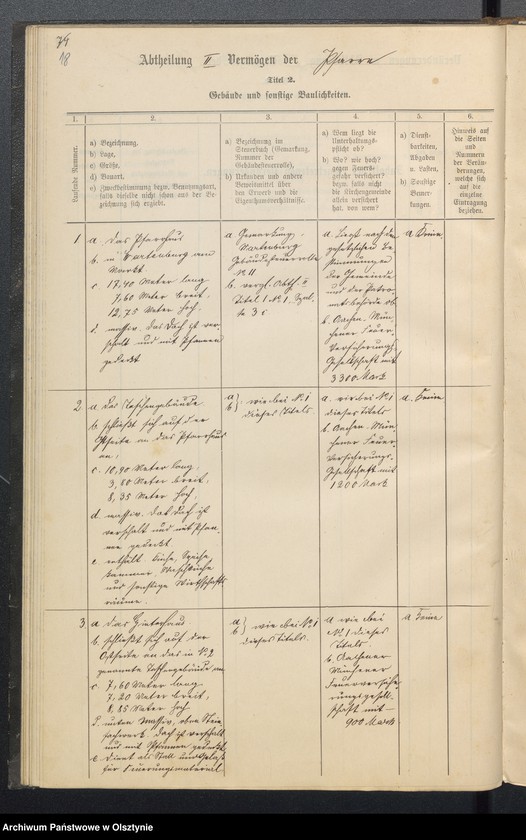 74
78
Abtheilung II Vermögen der Pfarre
Titel 2.
Gebäude und sonstige Baulichkeiten.
1.
2.
3.
4.
5.
6.
Laufende Nummer.
a) Bezeichnung,
b) Lage,
c) Größe,
d) Bauart,
e) Zweckbestimmung bezw. Benutzungsart,
falls dieselbe nicht schon aus der Be-
zeichnung sich ergiebt.
a) Bezeichnung im
Steuerbuch (Gemarkung,
Nummer der
Gebäudesteuerrolle),
b) Urkunden und andere
Beweismittel über
den Erwerb und die
Eigenthumsverhältnisse.
a) Wem liegt die
Unterhaltungs-
pflicht ob?
b) Wo? wie hoch?
gegen Feuers-
gefahr versichert?
bezw. falls nicht
die Kirchengemeinde
allein versichert
hat, von wem?
a) Dienst-
barkeiten,
Abgaben
u. Lasten,
b) Sonstige
Bemer-
kungen.
Hinweis auf
die Seiten
und
Nummern
der Verän-
derungen,
welche sich
auf die
einzelne
Eintragung
beziehen.
1
a. Das Pfarrhaus
b. in Wartenburg am
Markt.
c. 17,40 Meter lang
7,60 Meter breit,
12,75 Meter hoch,
d. massiv. Das Dach ist ver-
schalt und mit Pfannen
gedeckt
a Gemarkung
Wartenburg
Gebäudesteuerrolle
No 11
b. vergl. Abth. II
Titel 1 No 1. Spal-
te 3 c
a. Liegt nach den
gesetzlichen Be-
stimmungen
der Gemeinde
und der Patro-
natsbehörde ob
b. Aachen-Mün-
chener Feuer-
Versicherungs-
Gesellschaft mit
3300 Mark
a. Keine
2
b. schließt sich auf der
Ostseite an das Pfarrhaus
an,
c. 10,90 Meter lang,
3,80 Meter breit,
8,35 Meter hoch,
d. massiv. Das Dach ist
verschalt und mit Pfan-
nen gedeckt
e enthält Küche, Speise-
kammer, Waschküche
und sonstige Wirthschafts-
räume.
a) b) wie bei No 1
dieses Titels.
a. wie bei No 1
dieses Titels
b. Aachen-Mün-
chener Feuer-
Versicherungs-
Gesellschaft mit
1200 Mark
a. Keine
3
b. schließt sich auf der
Ostseite an das in No 2
c. 7,60 Meter lang
7,20 Meter breit,
8,85 Meter hoch
Dach ist verschalt
und mit Pfannen gedeckt
e. dient als Stall und Gelaß
für Feuerungsmaterial.
a) b) wie bei No 1
dieses Titels.
a. wie bei
No 1 dieses
Titels
b. Aachener
Münchener
Feuerversiche-
rungsgesell-
schaft mit
900 Mark
a Keine
Archiwum Państwowe w Olsztynie